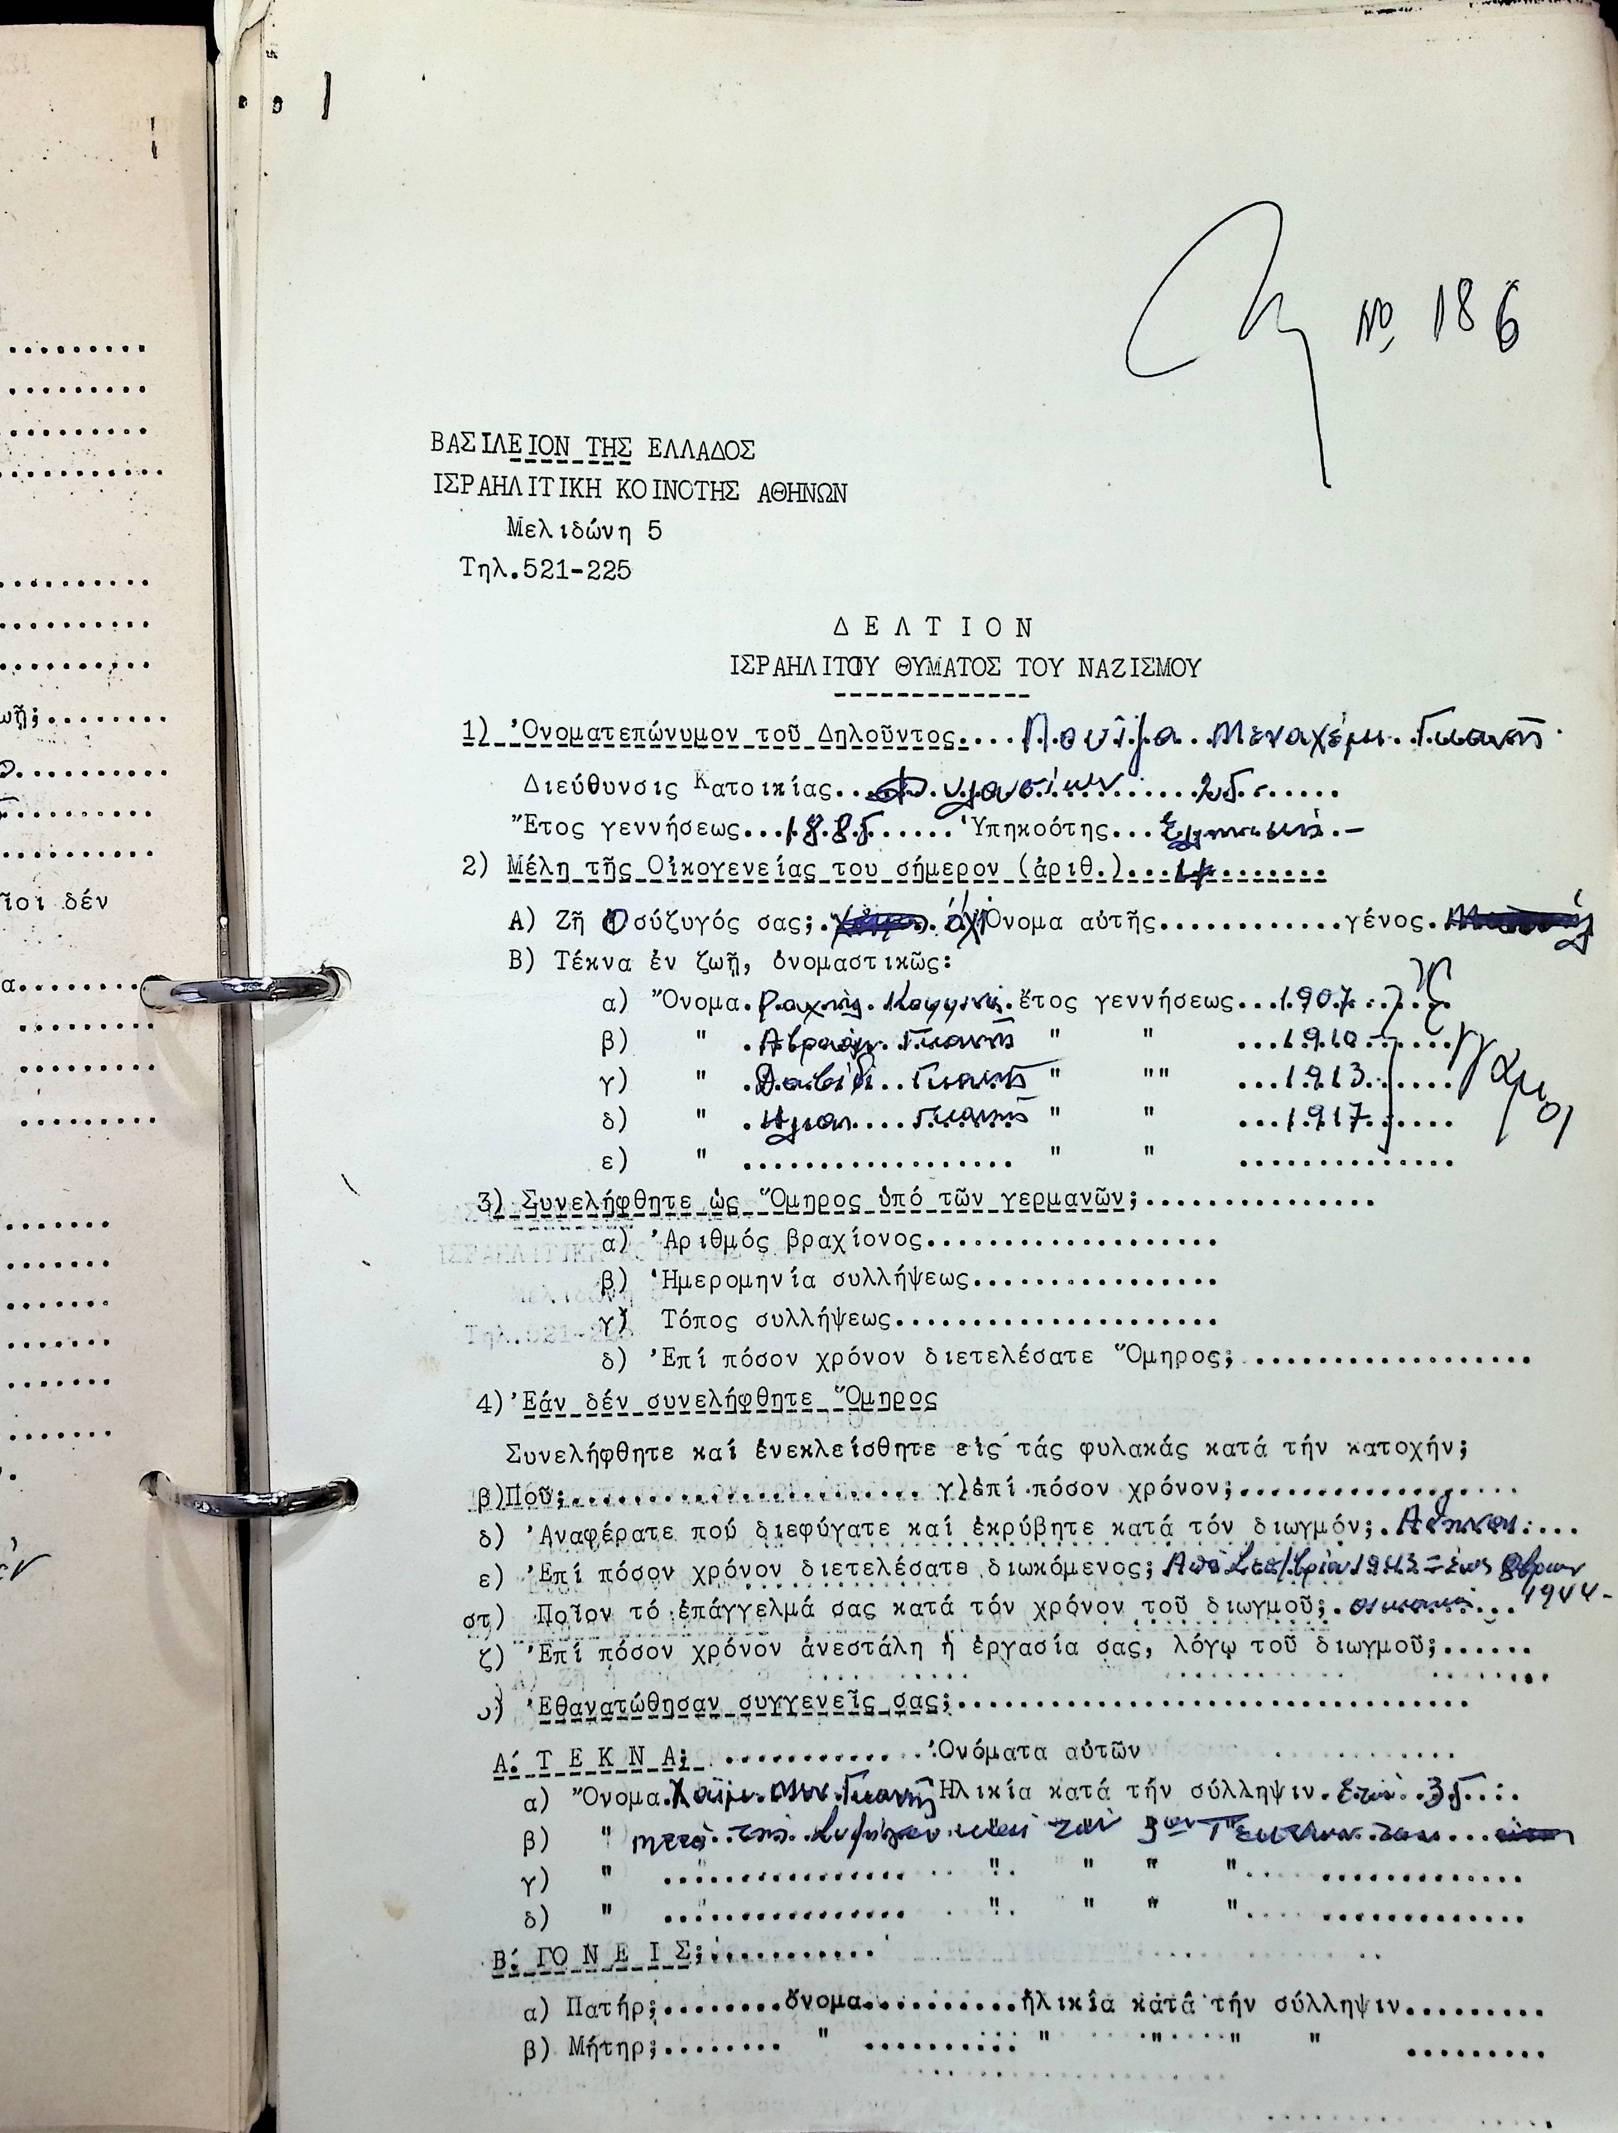 Νο 186
ΒΑΣΙΛΕΙΟΝ ΤΗΣ ΕΛΛΑΔΟΣ
ΙΣΡΑΗΛΙΤΙΚΗ ΚΟΙΝΟΤΗΣ ΑΘΗΝΩΝ
Μελιδώνη 5
Τηλ.521-225
Δ Ε Λ Τ Ι Ο Ν
ΙΣΡΑΗΛΙΤΟΥ ΘΥΜΑΤΟΣ ΤΟΥ ΝΑΖΙΣΜΟΥ
1) Ὀνοματεπώνυμον τοῦ Δηλοῦντος.... Λουΐζα Μεναχέμ Γκανῆ
Διεύθυνσις Κατοικίας.. 25
Ἔτος γεννήσεως...1885......Ὑπηκοότης...Ἑλληνική.-
2) Μέλη τῆς Οἰκογενείας του σήμερον (ἀριθ.)...
Α) Ζῆ Ο σύζυγός σας; ὄχι Ὄνομα αὐτῆς............γένος.
Β) Τέκνα ἐν ζωῇ, ὀνομαστικῶς:
α) Ὄνομα.Ραχήλ Κοφινᾶ.ἔτος γεννήσεως...1907
β) " .Ἀβραάμ Γκανῆ " " ...1910
γ) " .Δαβίδ..Γκανῆ " "" ...1913 γάμοι
δ) " .Ηλίας....Γκανῆ " " ...1917
ε) " .................. " " ..............
3) Συνελήφθητε ὡς Ὅμηρος ὑπό τῶν γερμανῶν;...............
α) Ἀριθμός βραχίονος...................
β) Ἡμερομηνία συλλήψεως................
γ) Τόπος συλλήψεως.....................
δ) Ἐπί πόσον χρόνον διετελέσατε Ὅμηρος; ..................
4) Ἐάν δέν συνελήφθητε Ὅμηρος
Συνελήφθητε καί ἐνεκλείσθητε εἰς τάς φυλακάς κατά τήν κατοχήν;
β)Ποῦ;....................... γ)ἐπί πόσον χρόνον;..................
δ) Ἀναφέρατε πού διεφύγατε καί ἐκρύβητε κατά τόν διωγμόν;.Ἀθήναι....
ε) Ἐπί πόσον χρόνον διετελέσατε διωκόμενος; Ἀπό Σεπ/βρίου 1943 = ἕως
στ) Ποῖον τό ἐπάγγελμά σας κατά τόν χρόνον τοῦ διωγμοῦ;.οἰκιακά... 1944-
ζ) Ἐπί πόσον χρόνον ἀνεστάλη ἡ ἐργασία σας, λόγῳ τοῦ διωγμοῦ;......
) Ἐθανατώθησαν συγγενεῖς σας;.................................
Α: Τ Ε Κ Ν Α; .............Ὀνόματα αὐτῶν
α) Ὄνομα.Χαΐμ Μεν. Γκανῆ Ηλικία κατά τήν σύλληψιν.ἐτῶν..35...
β) " μετά τῆς συζύγου καί τῶν 3ων Τέκνων του...
γ) " ................ " " " " .............
δ) " ................ " " " " .............
Β: ΓΟ Ν Ε Ι Σ;...........
α) Πατήρ;........ὄνομα...........ἡλικία κατά τήν σύλληψιν.........
β) Μήτηρ;........ " .......... " " " " .........
ωῇ;........
ῖοι δέν